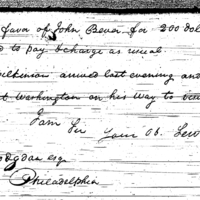 favor of John Bever for 200 dol
d to pay & charge as usual.
ilkinson arrived last evening and
t Washington on his way to
I am Sir
Your Ob. Serv
ogdan esqr
Philadelphia